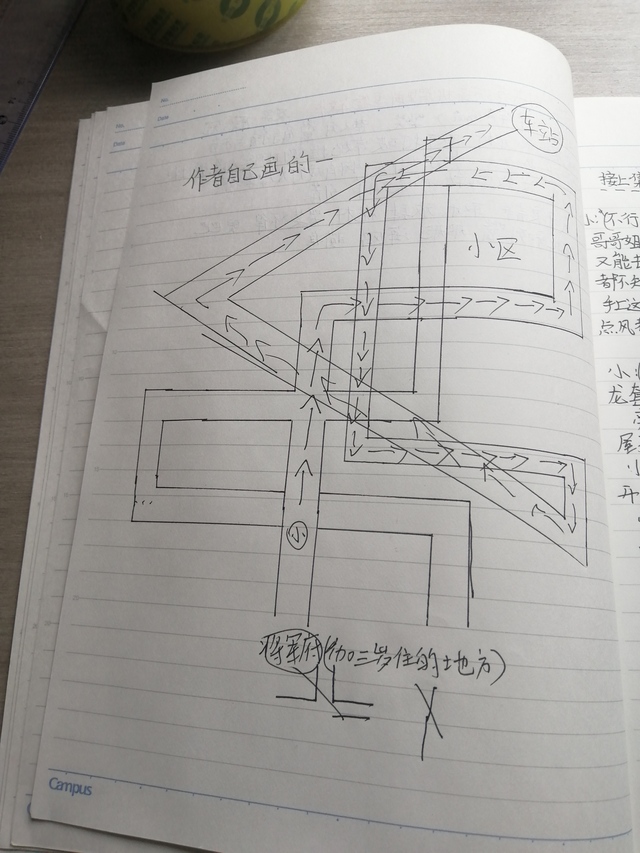 No.
Date
No.
Date
车站
作者自己画的一
小区
小
将军府(加三岁住的地方)
Campus
接上
小
不行
哥哥姐
又能
者
手
点风
小
龙套
屋
小
开